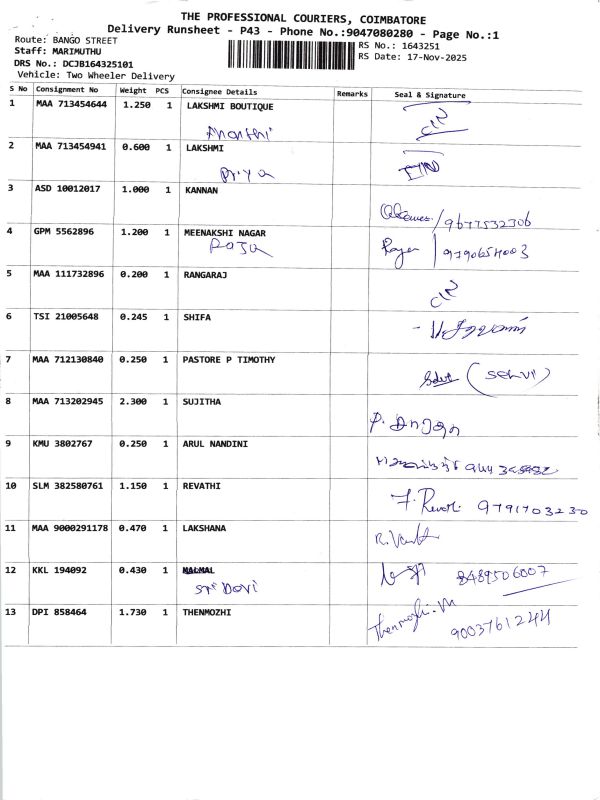 THE PROFESSIONAL COURIERS, COIMBATORE
Delivery Runsheet - P43 - Phone No.:9047080280 - Page No.:1
Route: BANGO STREET
RS No.: 1643251
Staff: MARIMUTHU
RS Date: 17-Nov-2025
DRS No.: DCJB164325101
Vehicle: Two Wheeler Delivery
S No Consignment No Weight PCS Consignee Details Remarks Seal & Signature
1 MAA 713454644 1.250 1 LAKSHMI BOUTIQUE
2 MAA 713454941 0.600 1 LAKSHMI
Priya
3 ASD 10012017 1.000 1 KANNAN
/9677532306
4 GPM 5562896 1.200 1 MEENAKSHI NAGAR
Raja
5 MAA 111732896 0.200 1 RANGARAJ
6 TSI 21005648 0.245 1 SHIFA
7 MAA 712130840 0.250 1 PASTORE P TIMOTHY
(SELVI)
8 MAA 713202945 2.300 1 SUJITHA
9 KMU 3802767 0.250 1 ARUL NANDINI
10 SLM 382580761 1.150 1 REVATHI
9791703230
11 MAA 9000291178 0.470 1 LAKSHANA
12 KKL 194092 0.430 1 MALMAL
Sri Devi
8489506007
13 DPI 858464 1.730 1 THENMOZHI
Thenmozhi.M
9003761244